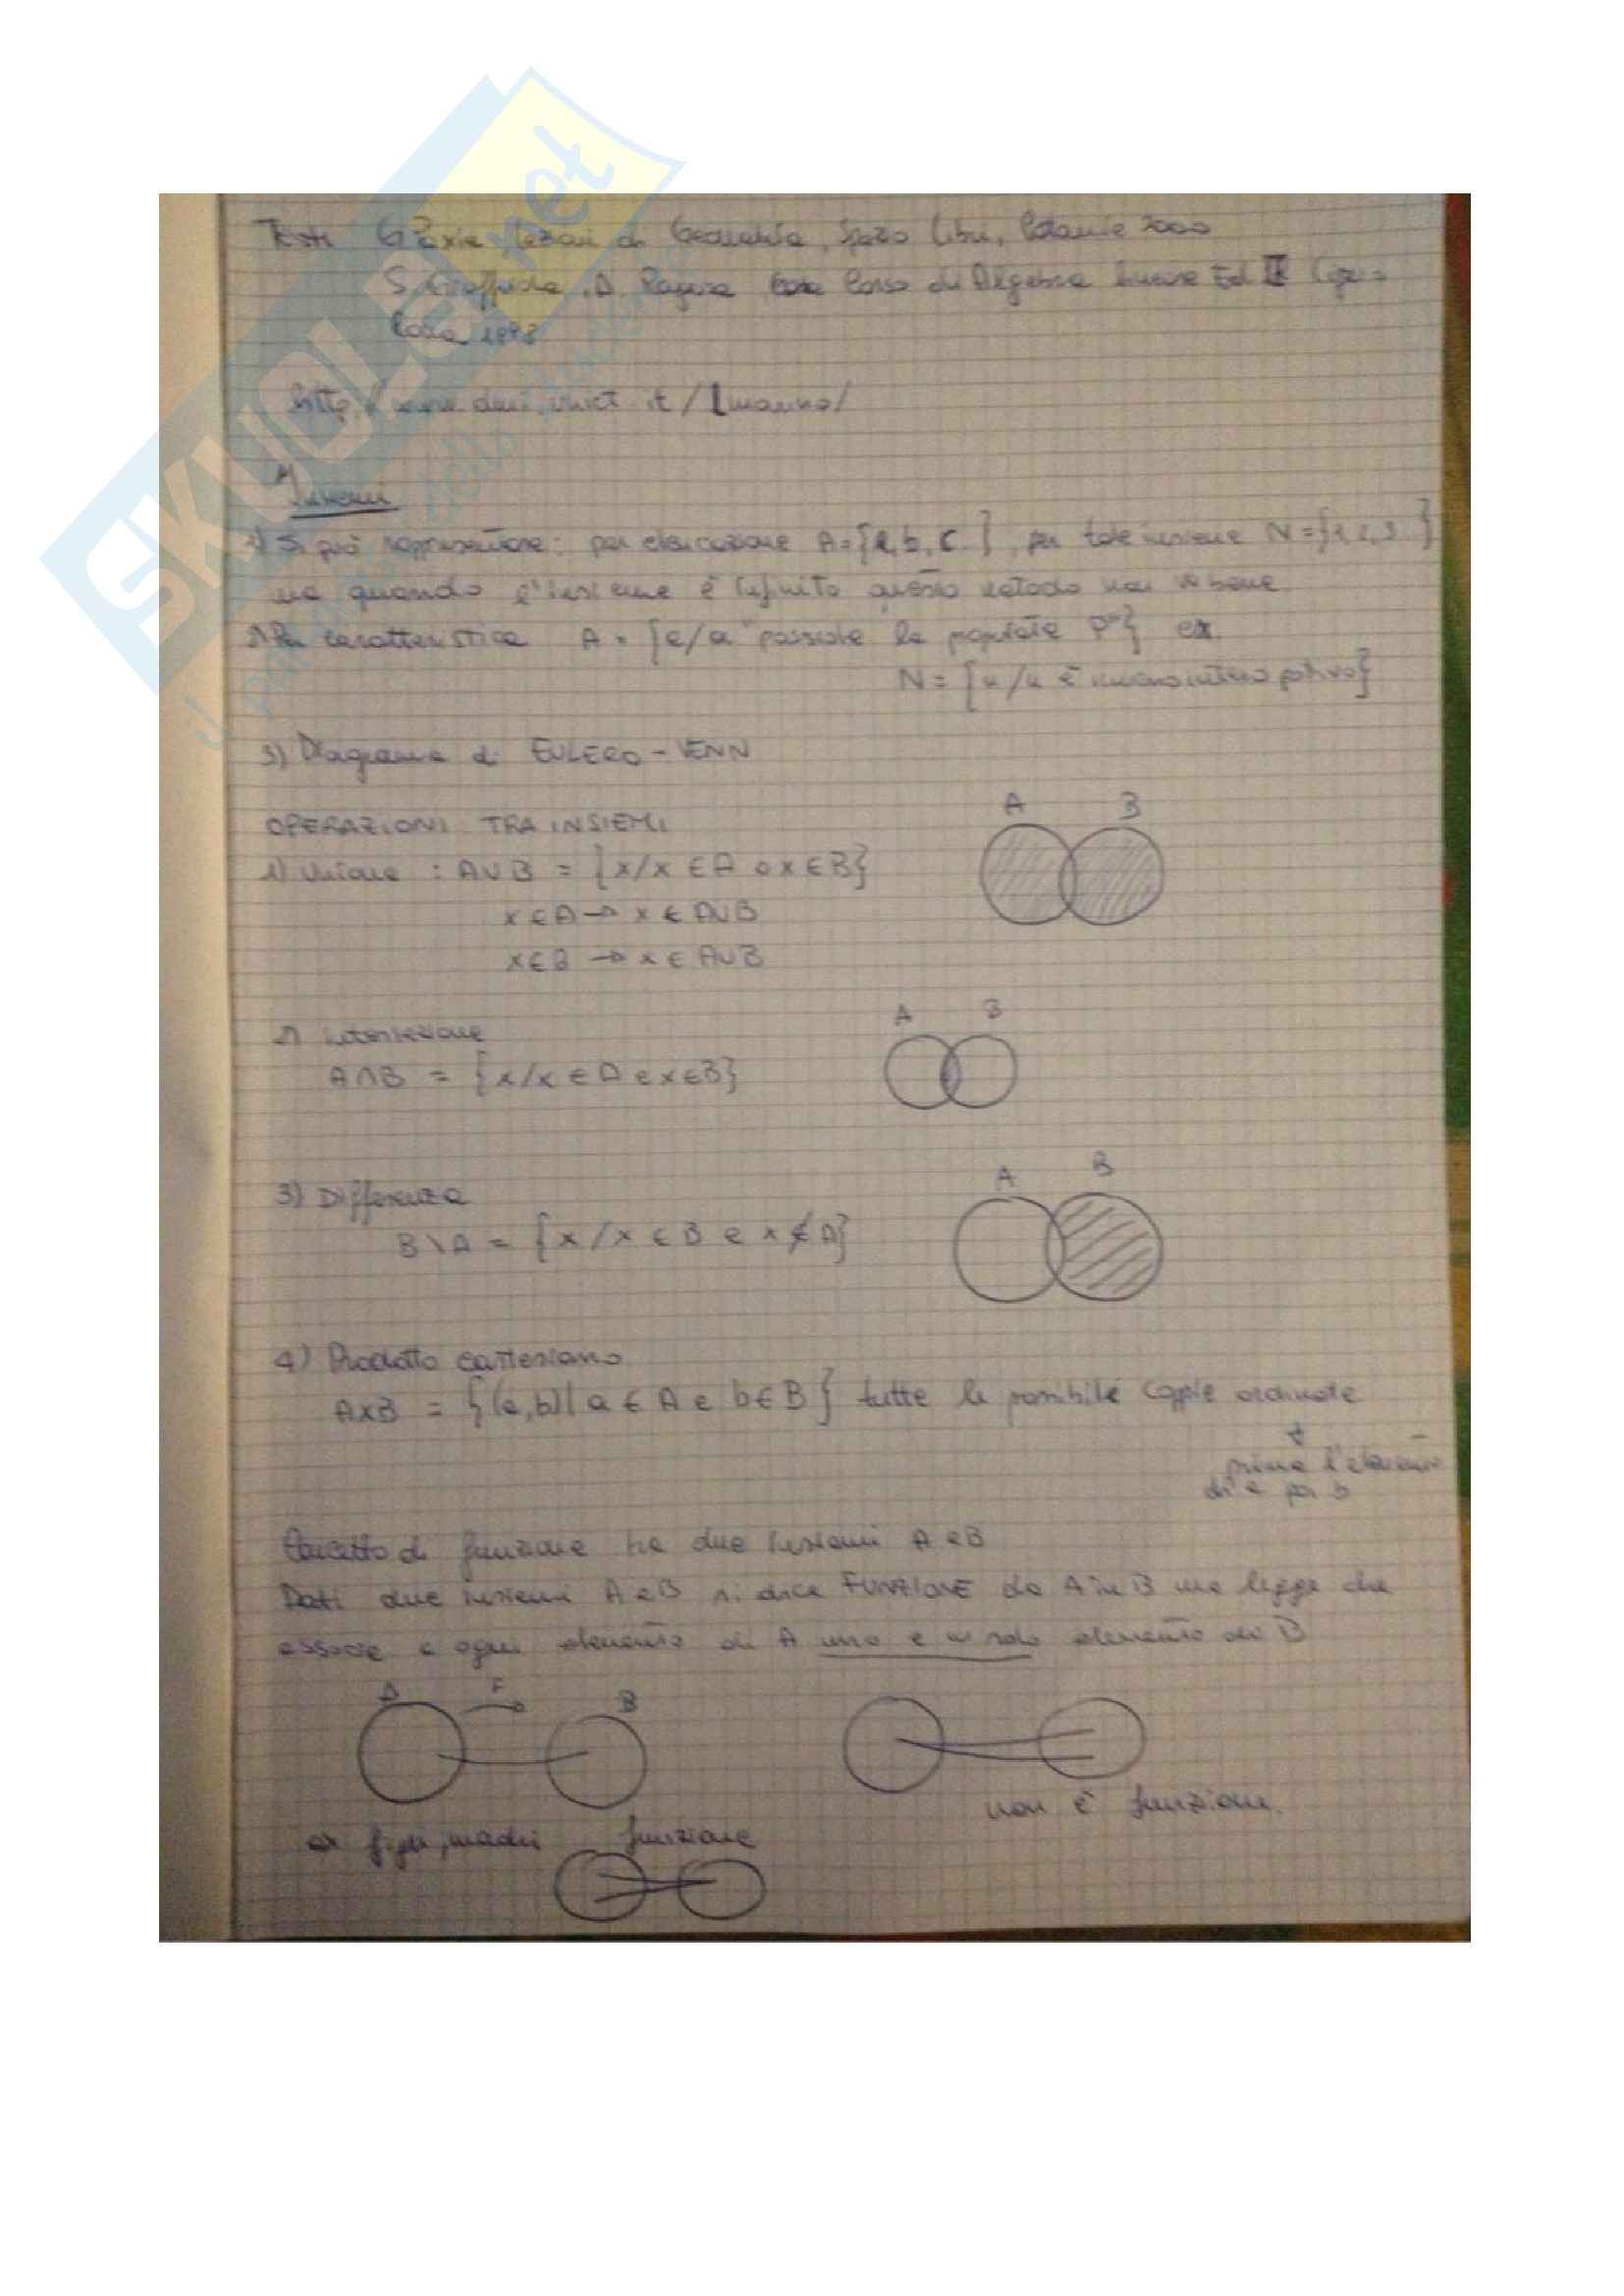 SKUOLA.net
Testi G Paxia Lezioni di Geometria, Spazio Libri, Catania 2000
S. Giuffrida, A. Ragusa Corso di Algebra lineare Ed II
1998
Insiemi
1) Si può rappresentare: per elencazione A={a,b,c..}, per tale insieme N={1,2,3..}
ma quando l'insieme è infinito questo metodo non va bene
2) Per caratteristica A = {a/a "possiede la proprietà P"} ex.
N = {n/n è numero intero positivo}
3) Diagramma di EULERO-VENN
OPERAZIONI TRA INSIEMI
A B
1) Unione : A∪B = {x/x ∈ A o x ∈ B}
x ∈ A → x ∈ A∪B
x ∈ B → x ∈ A∪B
A B
2) intersezione
A∩B = {x/x ∈ A e x ∈ B}
A B
3) Differenza
B\A = {x/x ∈ B e x ∉ A}
4) Prodotto cartesiano
AxB = {(a,b)| a ∈ A e b ∈ B} tutte le possibile coppie ordinate
prima l'elemento
di a poi b
Concetto di funzione tra due insiemi A e B
Dati due insiemi A e B si dice FUNZIONE da A in B una legge che
associa a ogni elemento di A uno e un solo elemento di B
A F B
non è funzione.
ex figli, madri funzione